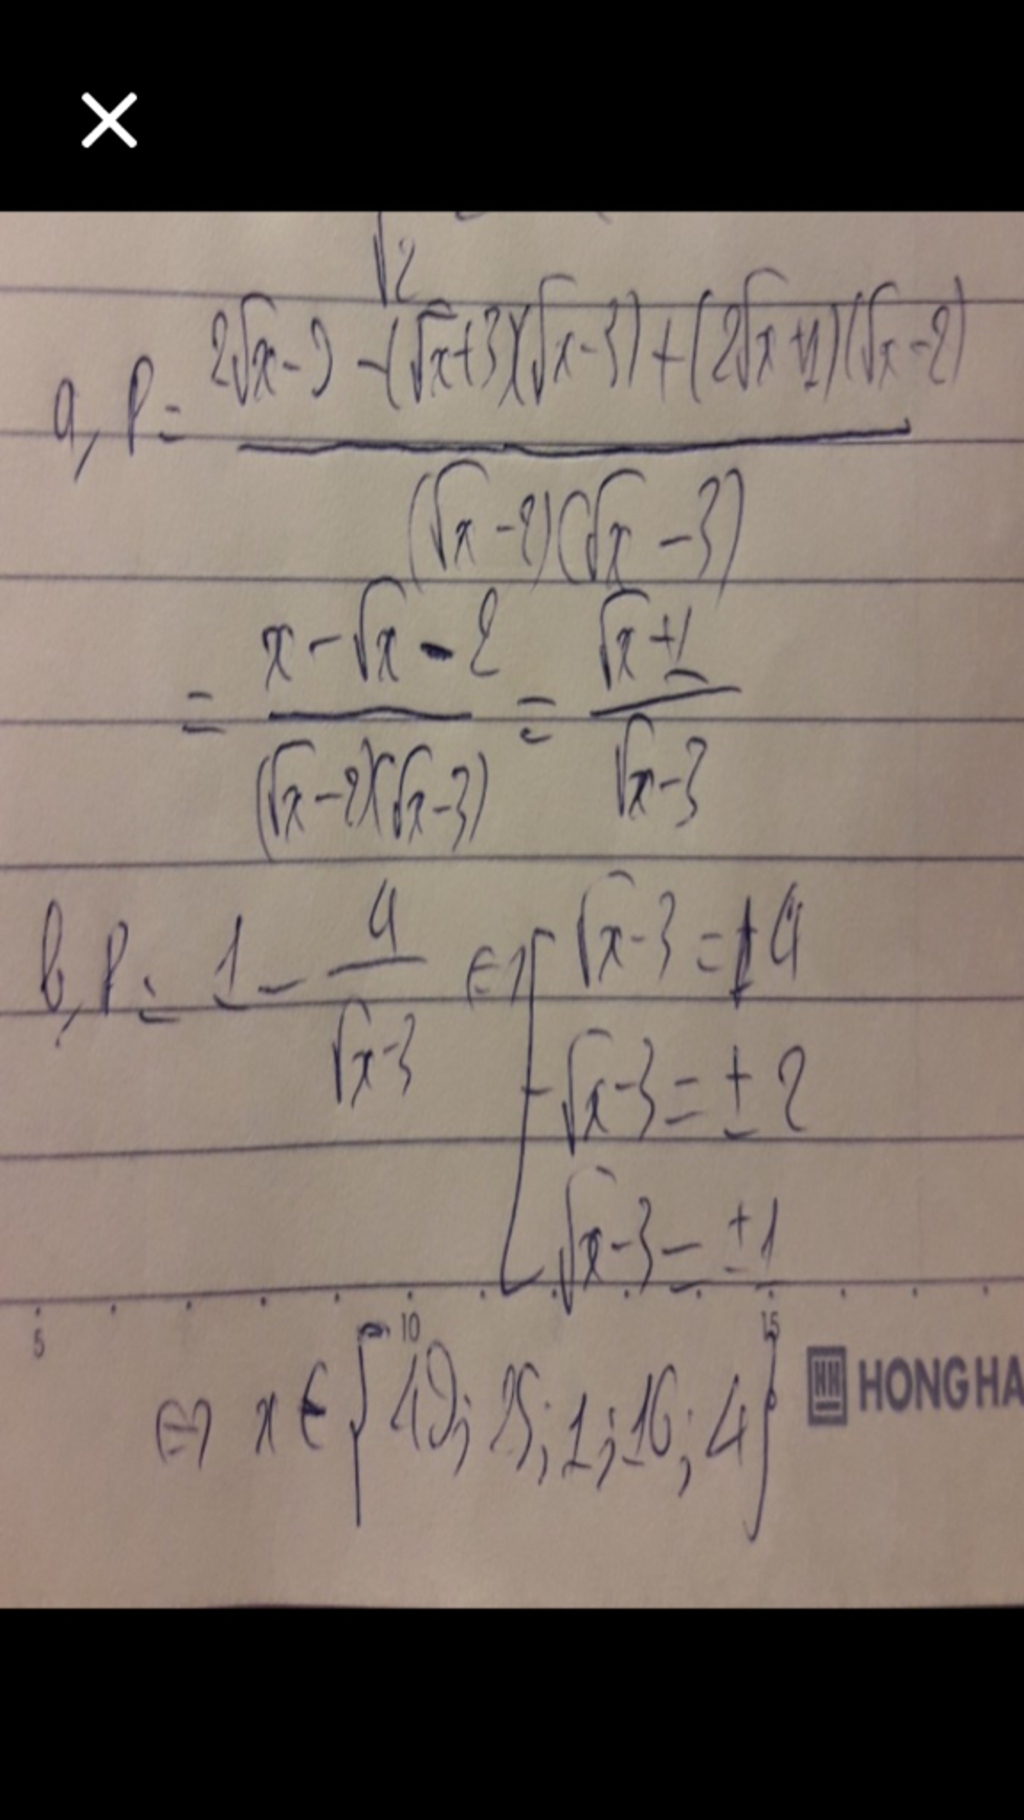 √2
a, P = (2√x - 9 - (√x+3)(√x-3) + (2√x+1)(√x-2)) / ((√x-2)(√x-3))
= (x - √x - 2) / ((√x-2)(√x-3)) = (√x+1) / (√x-3)
b, P = 1 - 4 / (√x-3) ⇔ [ √x-3 = ±4
√x-3 = ±2
√x-3 = ±1
5 10 15
HONG HA
⇔ x ∈ { 49; 25; 1; 16; 4 }